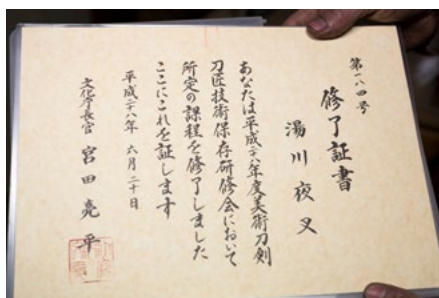 第一八四号
修了証書
湯川夜叉
あなたは平成二八年度美術刀剣
刀匠技術保存研修会において
所定の課程を修了しました
ここにこれを証します
平成二八年六月二十日
文化庁長官 宮田亮平